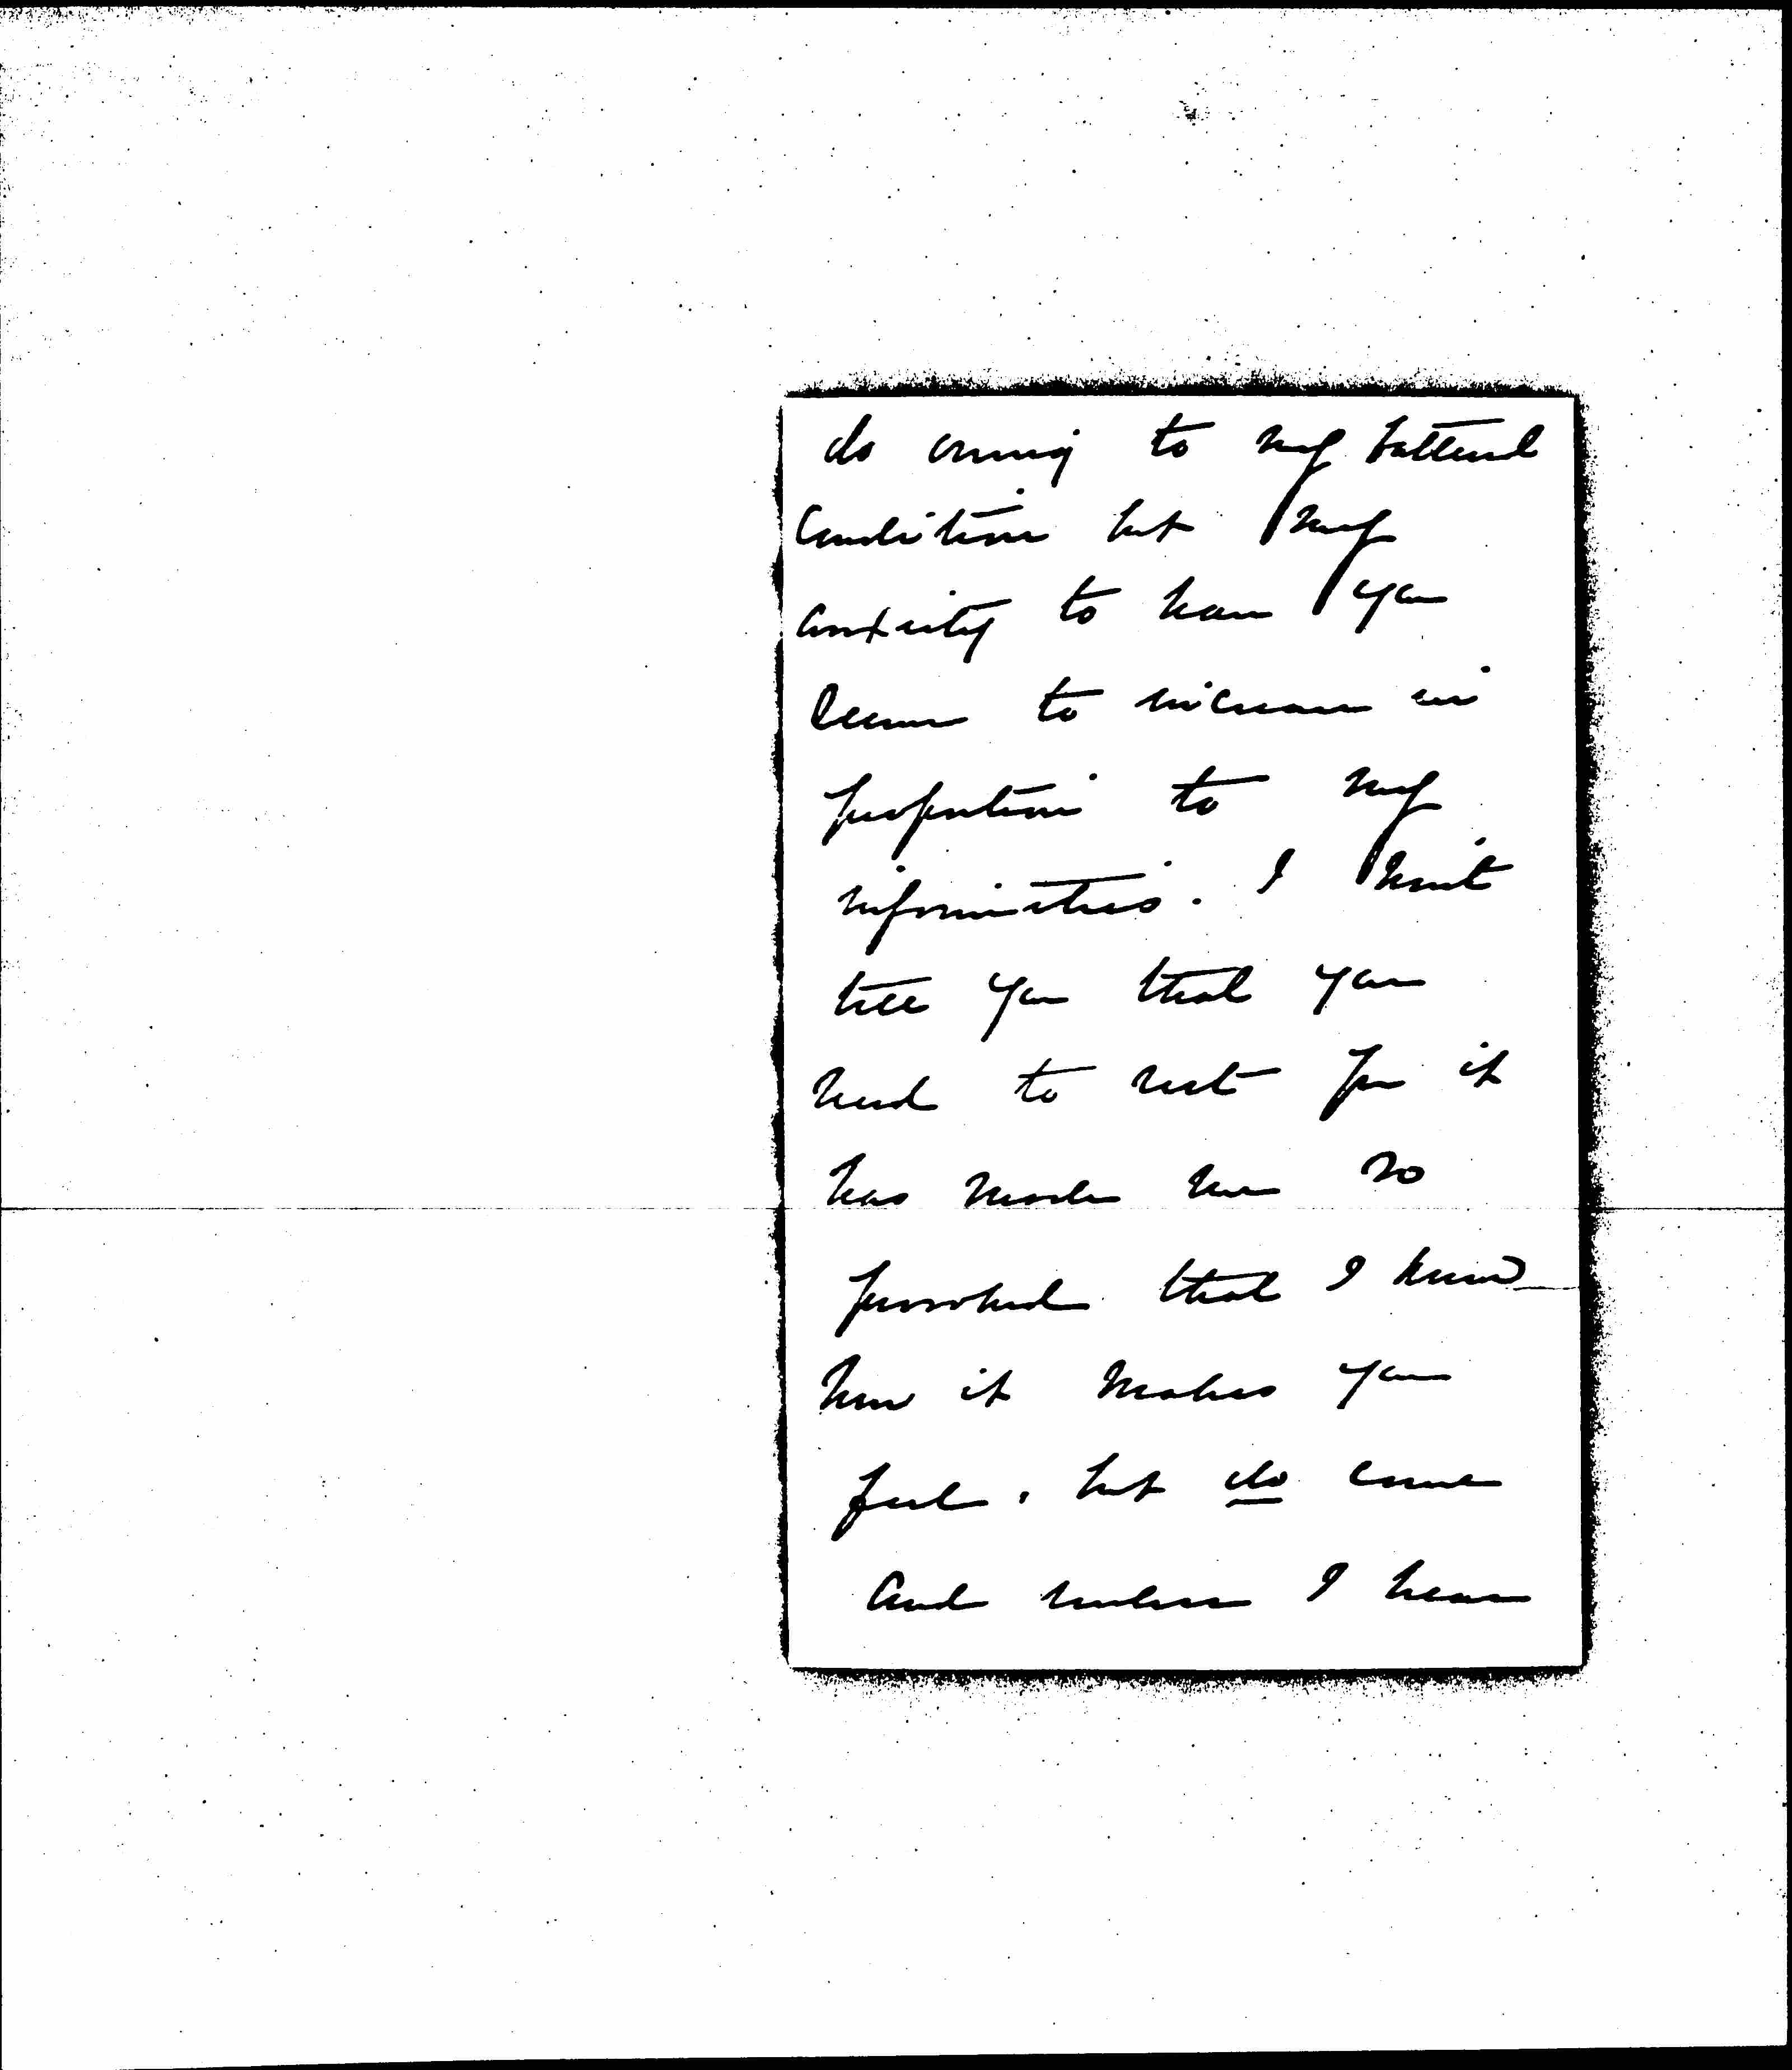 do owing to my battered
condition but my
anxiety to have you
seems to increase in
proportion to my
infirmities. I won't
tell you that you
need to rest for it
has made me so
provoked that I know
how it makes you
feel, but do come
and unless I hear